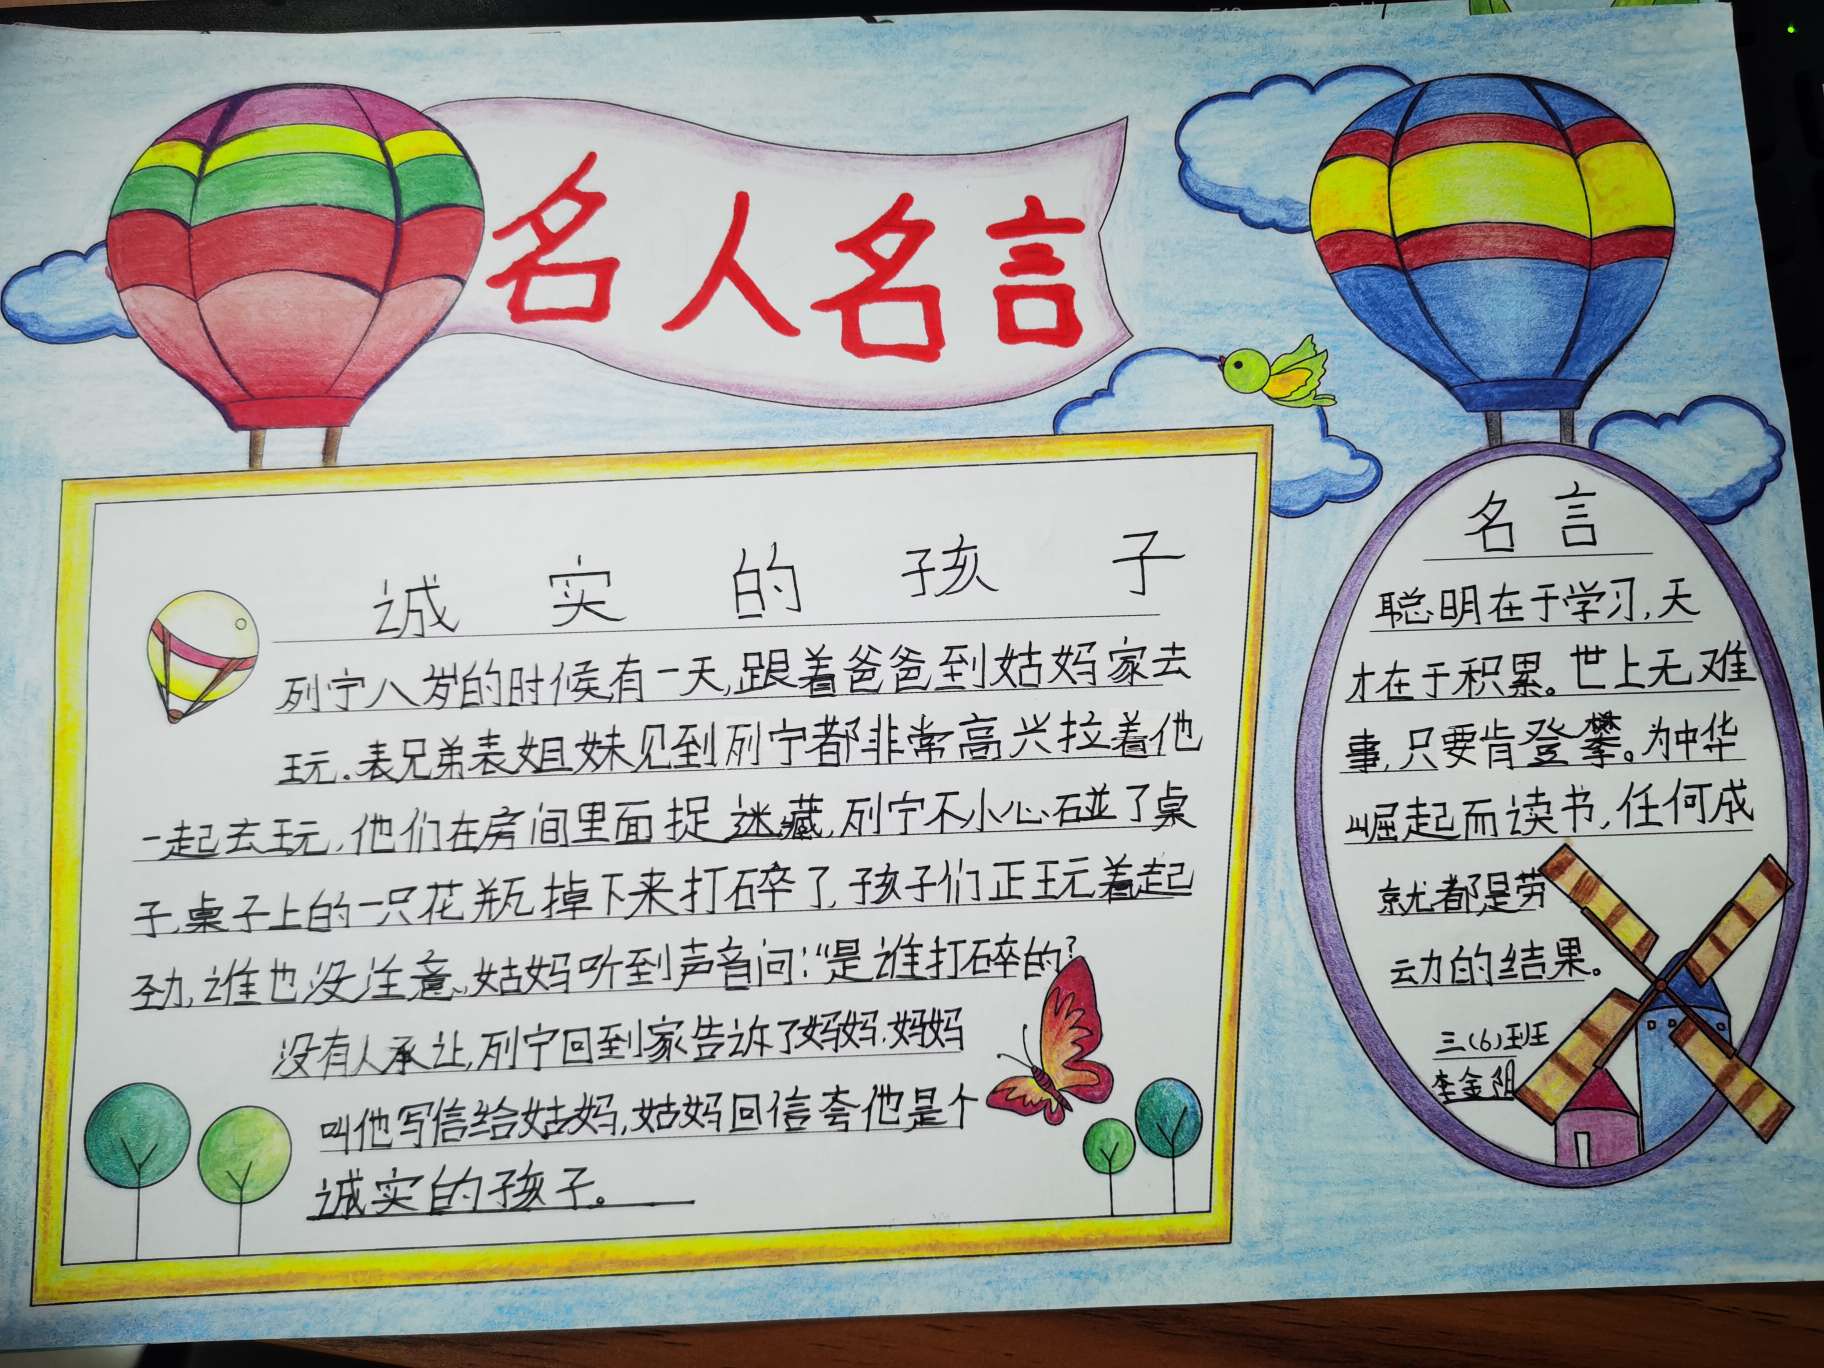 名人名言
诚实的孩子
列宁八岁的时候,有一天,跟着爸爸到姑妈家去
玩。表兄弟表姐妹见到列宁都非常高兴拉着他
一起去玩,他们在房间里面捉迷藏,列宁不小心碰了桌
子,桌子上的一只花瓶掉下来打碎了,孩子们正玩着起
劲,谁也没注意,姑妈听到声音问:“是谁打碎的?
没有人承让,列宁回到家告诉了妈妈,妈妈
叫他写信给姑妈,姑妈回信夸他是个
诚实的孩子。
名言
聪明在于学习,天
才在于积累。世上无难
事,只要肯登攀。为中华
崛起而读书,任何成
就都是劳
动的结果。
三(6)班
李金